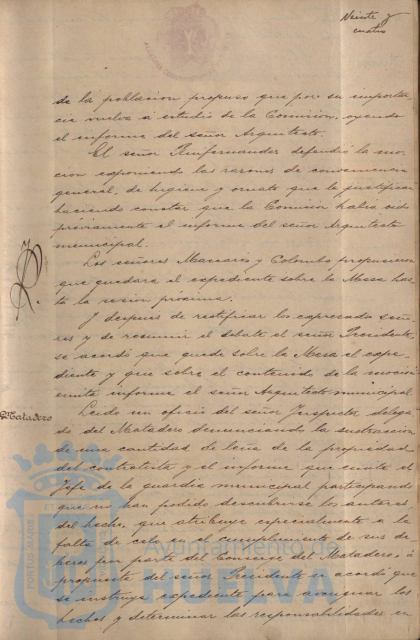 Veinte y
cuatro
de la poblacion propuso que por su importan
cia vuelva a estudio de la Comision, oyendo
el informe del señor Arquitecto.
El señor Fernandez defendió la mo
cion exponiendo las razones de conveniencia
general, de higiene y ornato que la justifican
haciendo constar que la Comisión habia oido
préviamente el informe del señor Arquitecto
municipal.
Los señores Mascarós y Colombo propusieron
que quedara el expediente sobre la Mesa has
ta la sesion próxima.
Y despues de rectificar los expresados seño
res y de resumir el debate el señor Presidente,
se acordó que quede sobre la Mesa el expe
diente y que sobre el contenido de la mocion
emita informe el señor Arquitecto municipal.
Matadero
Leido un oficio del señor Inspector delega
do del Matadero denunciando la sustraccion
de una cantidad de leña de la propiedad
del contratista y el informe que emite el
Jefe de la guardia municipal participando
que no han podido descubrirse los autores
del hecho, que atribuye especialmente a la
falta de celo en el cumplimiento de sus de
beres por parte del Conserje del Matadero, á
propuesta del señor Presidente se acordó que
se instruya expediente para averiguar los
hechos y determinar las responsabilidades en
Ayuntamiento
HUELVA